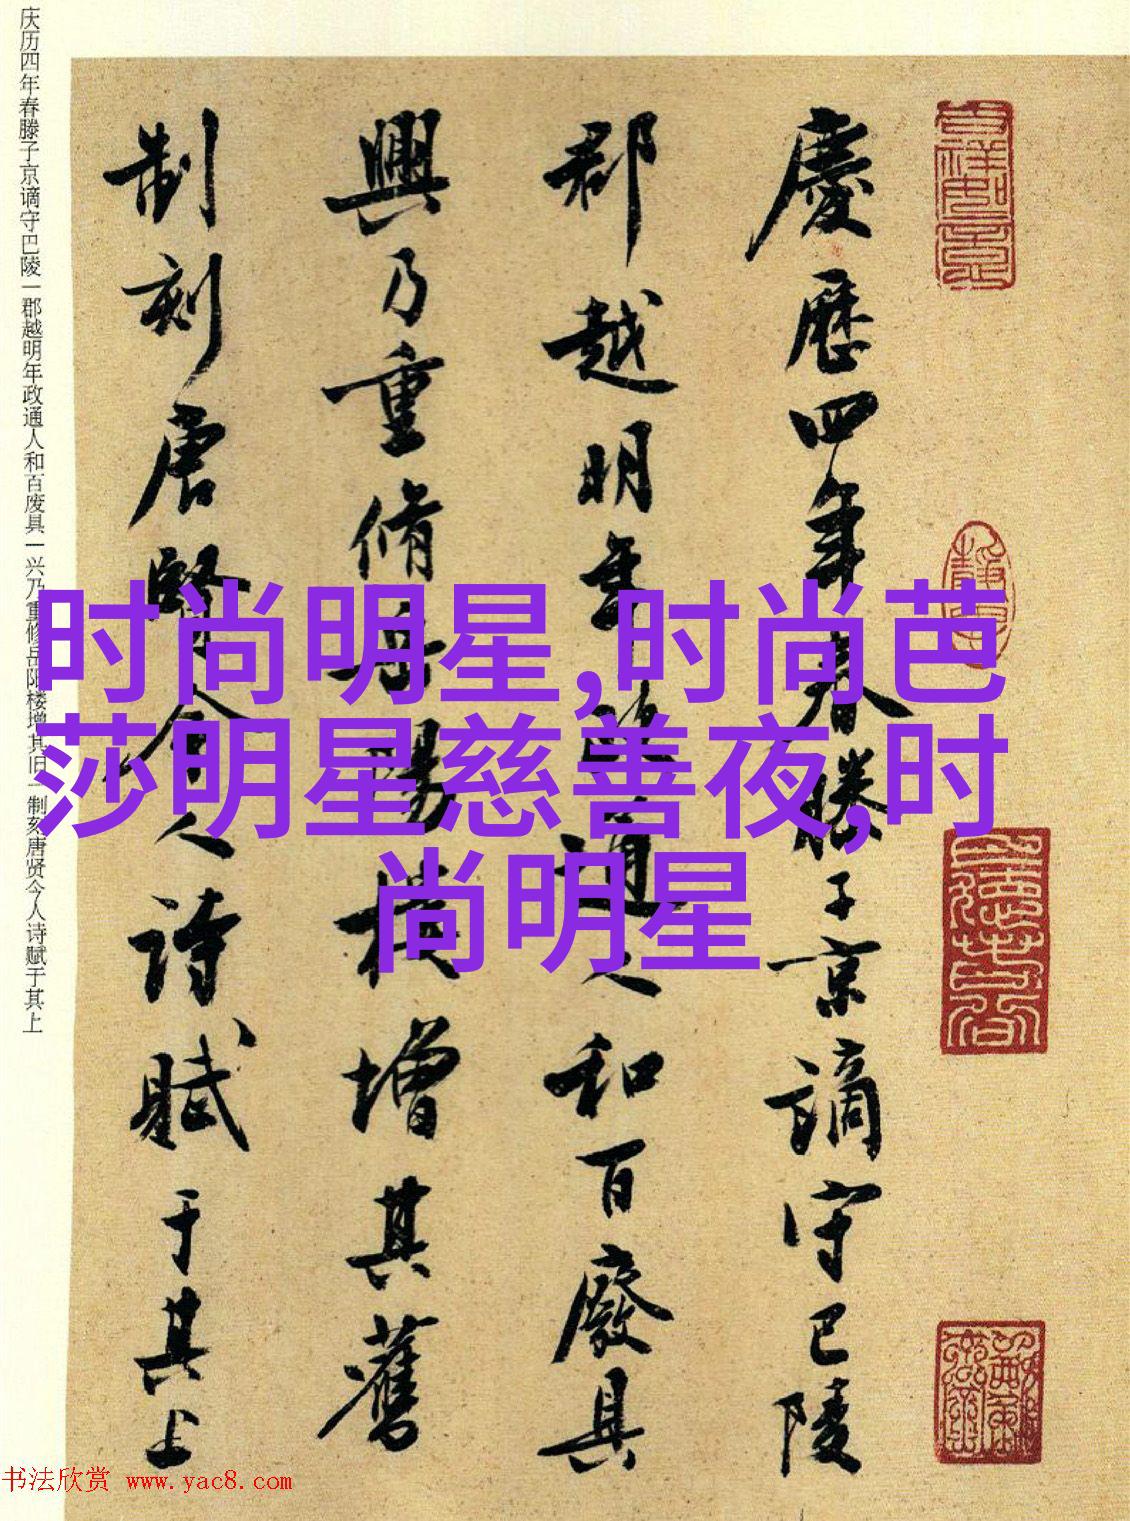 庆历四年春滕子京谪守巴陵一郡越明年政通人和百废具一兴乃重修岳阳楼增其旧一制刻唐贤今人诗赋于其上
慶歷四年春滕子京謫守巴陵
郡越明年政通人和百廢具
興乃重脩岳陽樓增其舊
制刻唐賢今人詩賦于其上
时尚明星,时尚芭
莎明星慈善夜,时
尚明星
书法欣赏 www.yac8.com